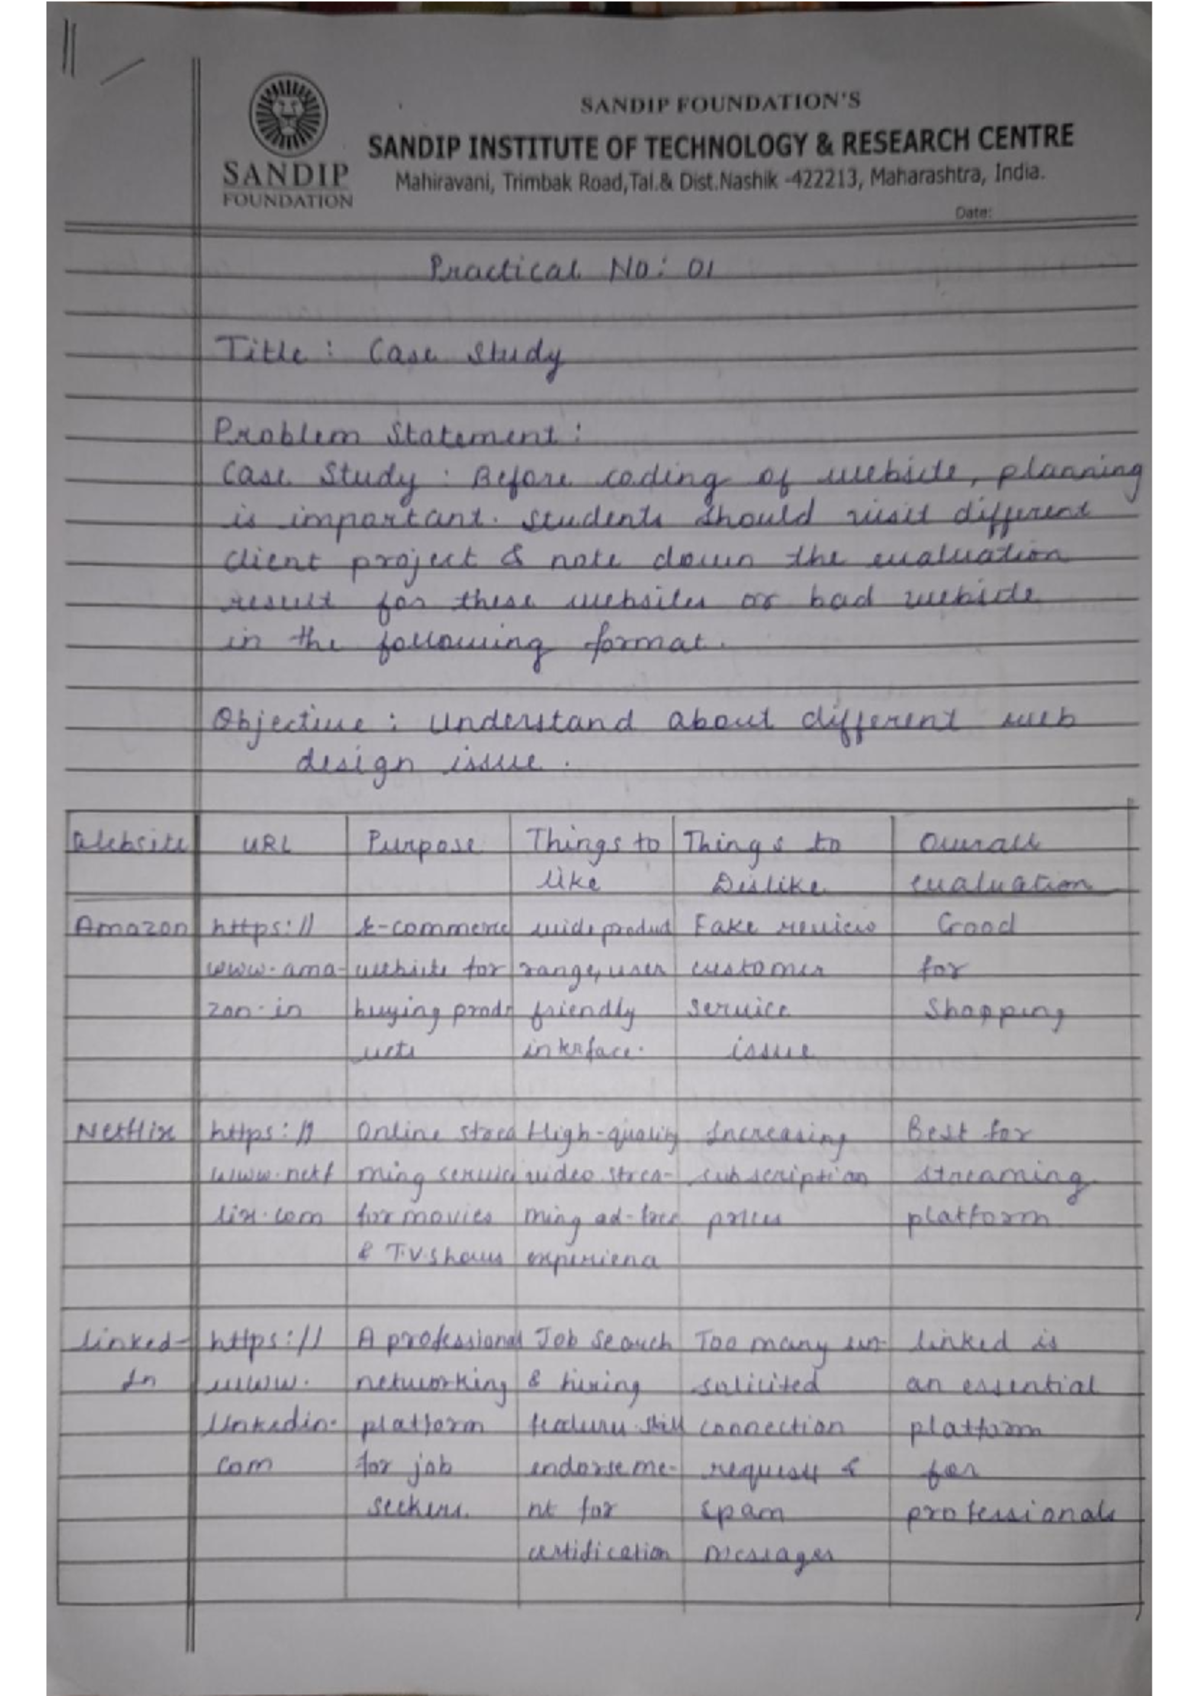 SANDIP FOUNDATION'S
SANDIP INSTITUTE OF TECHNOLOGY & RESEARCH CENTRE
Mahiravani, Trimbak Road,Tal.& Dist.Nashik -422213, Maharashtra, India.
SANDIP
FOUNDATION
Date:
Practical No: 01
Title : Case Study
Problem Statement :
Case Study : Before coding of webside, planning
is important. Students should visit different
client project & note down the evaluation
result for these websites or bad webside
in the following format.
Objective : Understand about different web
design issue.
Website URL Purpose Things to Things to Overall
like Dislike evaluation
Amazon https:// E-commerce wide product Fake review Good
www.ama- website for range, user customer for
zon.in buying prod- friendly service Shopping
ucts interface. issue
Netflix https:// Online strea High-quality Increasing Best for
www.netf ming service video strea- subscription streaming
lix.com for movies ming ad-free prices platform
& T.V.Shows experience
Linked- https:// A professional Job Search Too many un- linked is
In www. networking & hiring solicited an essential
linkedin. platform feature skill connection platform
com for job endorseme- request & for
seekers. nt for spam professionals
certification messages